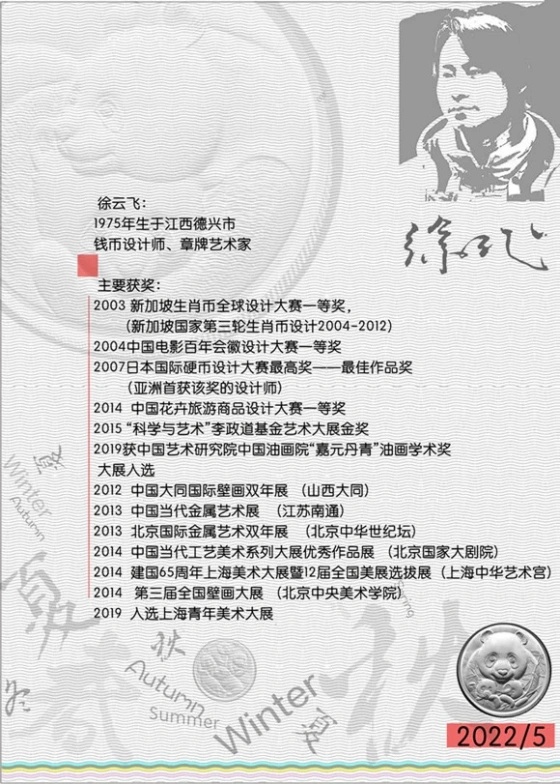 徐云飞
徐云飞：
1975年生于江西德兴市
钱币设计师、章牌艺术家
主要获奖：
2003 新加坡生肖币全球设计大赛一等奖，
（新加坡国家第三轮生肖币设计2004-2012）
2004中国电影百年会徽设计大赛一等奖
2007日本国际硬币设计大赛最高奖——最佳作品奖
（亚洲首获该奖的设计师）
2014 中国花卉旅游商品设计大赛一等奖
2015 “科学与艺术”李政道基金艺术大展金奖
2019获中国艺术研究院中国油画院“嘉元丹青”油画学术奖
大展入选
2012 中国大同国际壁画双年展 （山西大同）
2013 中国当代金属艺术展 （江苏南通）
2013 北京国际金属艺术双年展 （北京中华世纪坛）
2014 中国当代工艺美术系列大展优秀作品展 （北京国家大剧院）
2014 建国65周年上海美术大展暨12届全国美展选拔展（上海中华艺术宫）
2014 第三届全国壁画大展 （北京中央美术学院）
2019 入选上海青年美术大展
夏
Winter
Autumn
夏
春
冬
秋
Autumn
Summer
Winter
夏
秋
Spring
2022/5